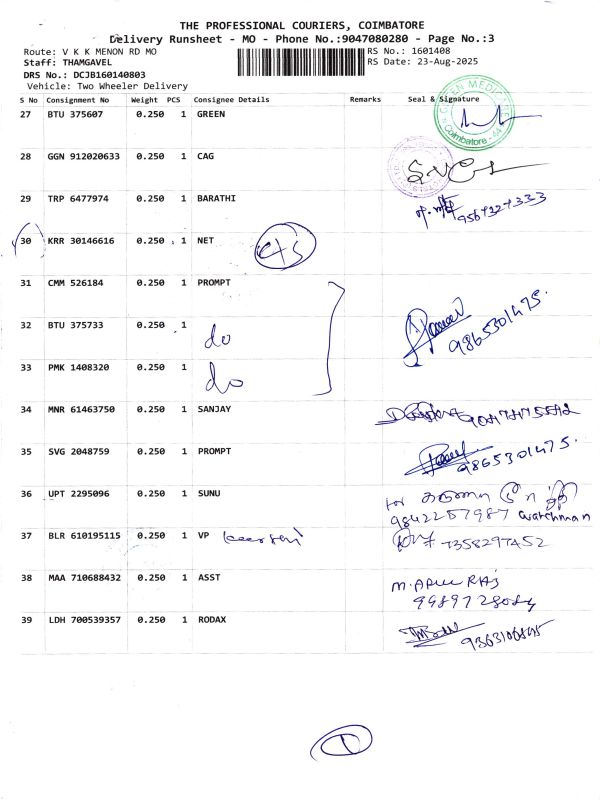 THE PROFESSIONAL COURIERS, COIMBATORE
Delivery Runsheet - MO - Phone No.:9047080280 - Page No.:3
Route: V K K MENON RD MO RS No.: 1601408
Staff: THAMGAVEL RS Date: 23-Aug-2025
DRS No.: DCJB160140803
Vehicle: Two Wheeler Delivery
S No Consignment No Weight PCS Consignee Details Remarks Seal & Signature
27 BTU 375607 0.250 1 GREEN
GREEN MEDICINE Coimbatore - 44
28 GGN 912020633 0.250 1 CAG
29 TRP 6477974 0.250 1 BARATHI
30 KRR 30146616 0.250 1 NET
31 CMM 526184 0.250 1 PROMPT
32 BTU 375733 0.250 1 do
9865301475.
33 PMK 1408320 0.250 1 do
34 MNR 61463750 0.250 1 SANJAY
35 SVG 2048759 0.250 1 PROMPT 9865301475.
36 UPT 2295096 0.250 1 SUNU
9842257987 watchman
37 BLR 610195115 0.250 1 VP 7358297452
38 MAA 710688432 0.250 1 ASST
39 LDH 700539357 0.250 1 RODAX
1